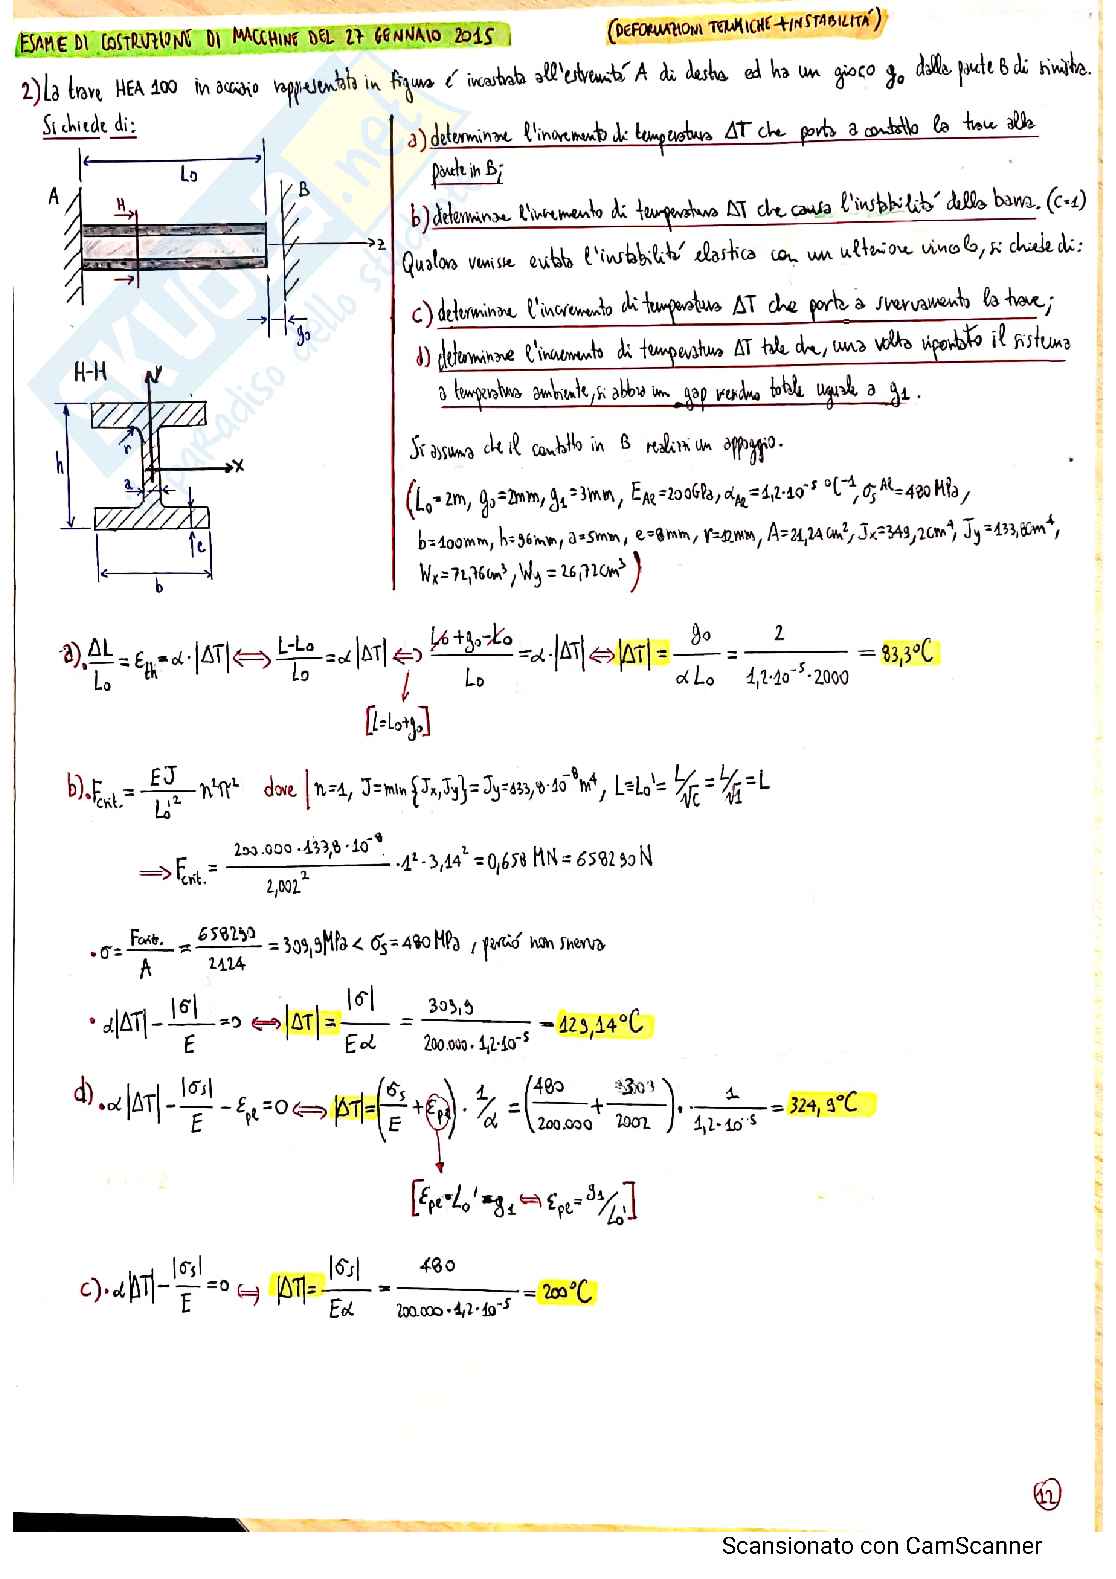 ESAME DI COSTRUZIONE DI MACCHINE DEL 27 GENNAIO 2015
(DEFORMAZIONI TERMICHE + INSTABILITÁ)
2) La trave HEA 100 in acciaio rappresentata in figura é incastrata all'estremitá A di destra ed ha un gioco g₀ dalla parete B di sinistra.
Si chiede di:
a) determinare l'incremento di temperatura ΔT che porta a contatto la trave alla
parete in B;
b) determinare l'incremento di temperatura ΔT che causa l'instabilitá della barra. (C=1)
Qualora venisse evitata l'instabilitá elastica con un ulteriore vincolo, si chiede di:
c) determinare l'incremento di temperatura ΔT che porta a snervamento la trave;
d) determinare l'incremento di temperatura ΔT tale che, una volta riportato il sistema
a temperatura ambiente, si abbia un gap residuo totale uguale a g₁.
Si assuma che il contatto in B realizzi un appoggio.
(L₀=2m, g₀=2mm, g₁=3mm, E_Al=200GPa, α_Al=1,2·10⁻⁵ °C⁻¹, σ_s^Al=480MPa,
b=100mm, h=96mm, a=5mm, e=8mm, r=12mm, A=21,24cm², Jx=349,2cm⁴, Jy=133,8cm⁴,
Wx=72,76cm³, Wy=26,72cm³)
L₀
A
H
B
z
g₀
H-H
y
r
h
a
x
e
b
a). ΔL/L₀ = ε_th = α·|ΔT| ⟺ L-L₀/L₀ = α|ΔT| ⟺ L₀+g₀-L₀/L₀ = α·|ΔT| ⟺ |ΔT| = g₀/αL₀ = 2/1,2·10⁻⁵·2000 = 83,3°C
[L=L₀+g₀]
b). F_crit. = EJ/L₀'² n²π² dove | n=1, J=min{Jx,Jy}=Jy=133,8·10⁻⁸m⁴, L=L₀'=L/√C=L/√1=L
⟹ F_crit. = 200.000·133,8·10⁻⁸/2,002² ·1²·3,14² = 0,658 MN = 658290 N
• σ = F_crit./A = 658290/2124 = 309,9MPa < σs = 480 MPa, perció non snerva
• α|ΔT| - |σ|/E = 0 ⟺ |ΔT| = |σ|/Eα = 309,9/200.000·1,2·10⁻⁵ = 129,14°C
d). α|ΔT| - |σs|/E - ε_pl = 0 ⟺ |ΔT| = (σs/E + ε_pl)·1/α = (480/200.000 + /2002)·1/1,2·10⁻⁵ = 324,9°C
[ε_pl=L₀'=g₁ ⟺ ε_pl=g₁/L₀']
c). α|ΔT| - |σs|/E = 0 ⟺ |ΔT| = |σs|/Eα = 480/200.000·1,2·10⁻⁵ = 200°C
12
Scansionato con CamScanner